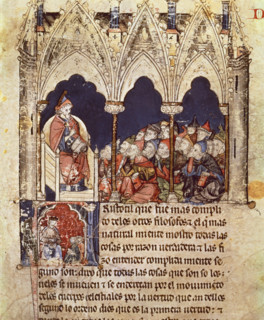 Ristotil que fue mas compli
do delos otros filosofos & el q mas
natural miente mostro todas las
cosas por razon uerdadera & las fi
zo entender complida miente se
gund son; dixo que todas las cosas que son so los ci
elos se mueuen & se enderecan por el mouimie to
delos cuerpos celestiales por la uertud que an delles
segund lo ordeno dios que es la primera uertud;